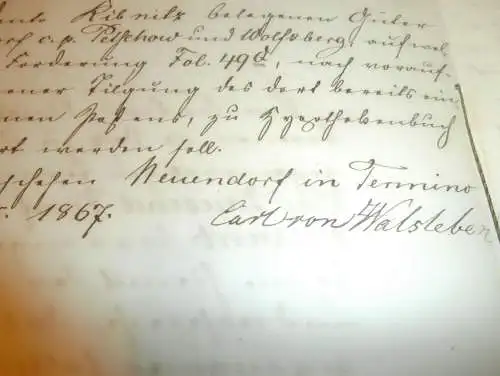 Ribnitz belegenen Güter
c. p. Petschow und Wolfsberg, auf wel-
Forderung Fol. 49 d, nach vorauf-
ener Tilgung des dort bereits ein
nen Postens, zu Hypothekenbuch
rt werden soll.
schehen Neuendorf in Termino
1867. Carl von Walsleben